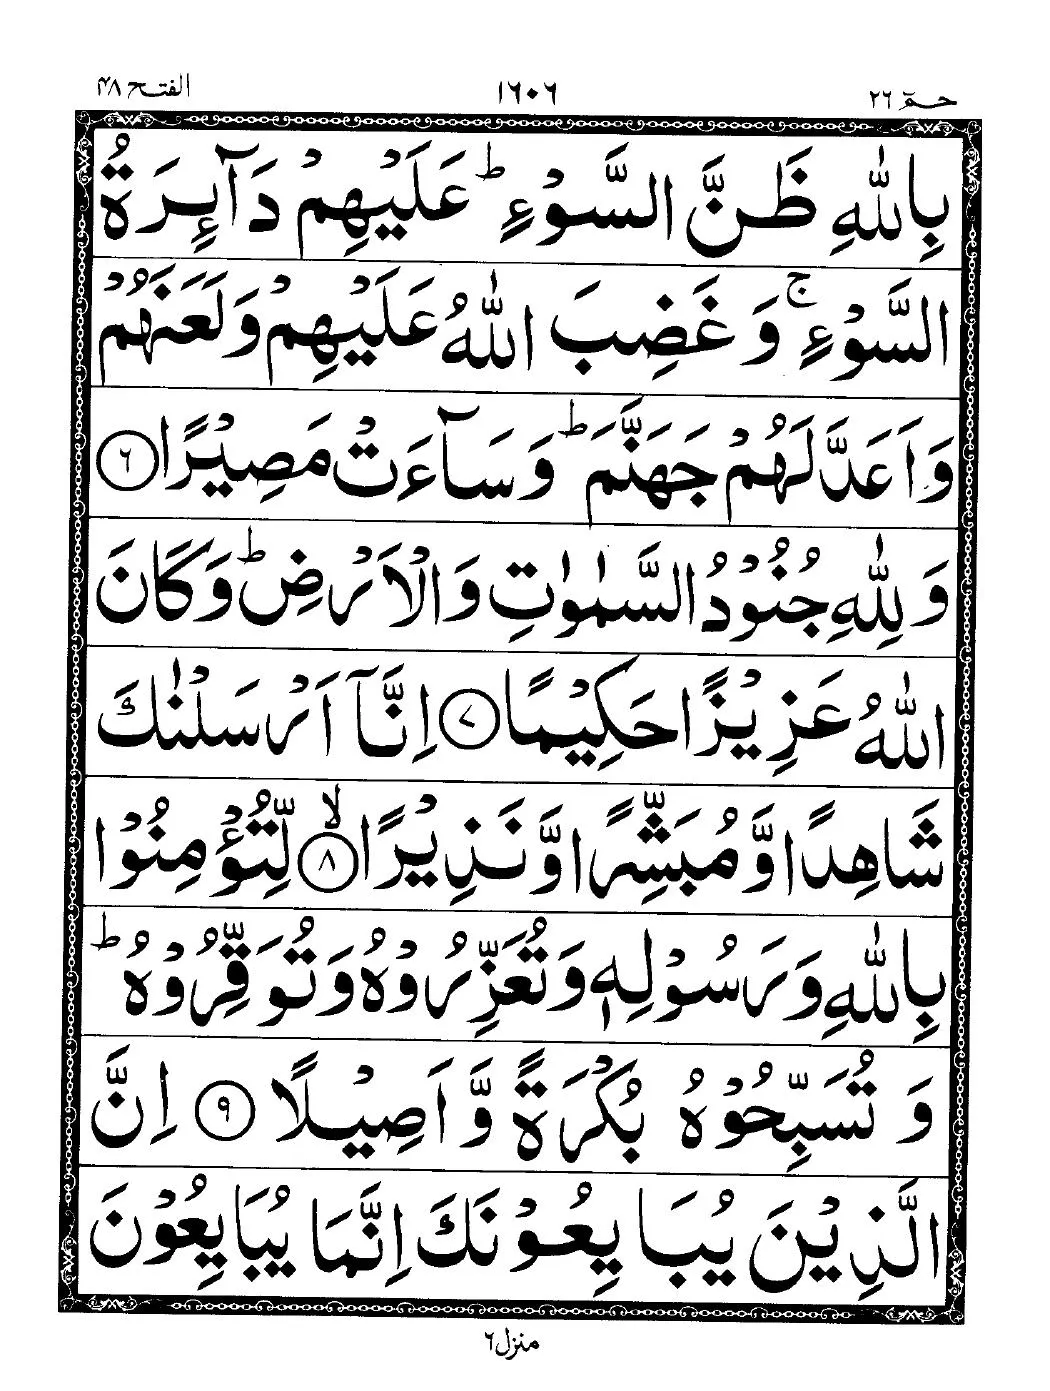 حٓمٓ ٢٦
١٦٠٦
الفتح ٤٨
بِاللّٰهِ ظَنَّ السَّوْءِ ؕ عَلَيْهِمْ دَآئِرَةُ
السَّوْءِ ۚ وَ غَضِبَ اللّٰهُ عَلَيْهِمْ وَلَعَنَهُمْ
وَاَعَدَّ لَهُمْ جَهَنَّمَ ؕ وَ سَآءَتْ مَصِيْرًا ۝٦
وَ لِلّٰهِ جُنُوْدُ السَّمٰوٰتِ وَالْاَرْضِ ؕ وَكَانَ
اللّٰهُ عَزِيْزًا حَكِيْمًا ۝٧ اِنَّاۤ اَرْسَلْنٰكَ
شَاهِدًا وَّ مُبَشِّرًا وَّ نَذِيْرًا ۝٨ ۙ لِّتُؤْمِنُوْا
بِاللّٰهِ وَ رَسُوْلِهٖ وَ تُعَزِّرُوْهُ وَ تُوَقِّرُوْهُ ؕ
وَ تُسَبِّحُوْهُ بُكْرَةً وَّ اَصِيْلًا ۝٩ اِنَّ
الَّذِيْنَ يُبَايِعُوْنَكَ اِنَّمَا يُبَايِعُوْنَ
منزل ٦